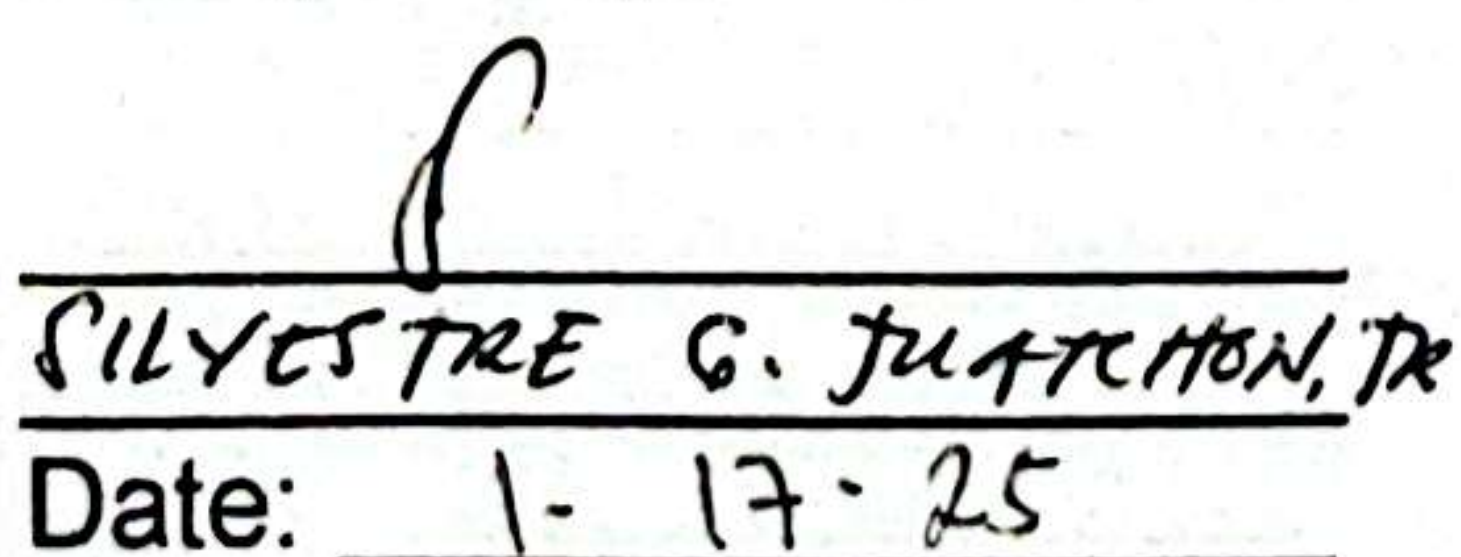 SILVESTRE G. JUATCHON, JR
Date: 1- 17- 25